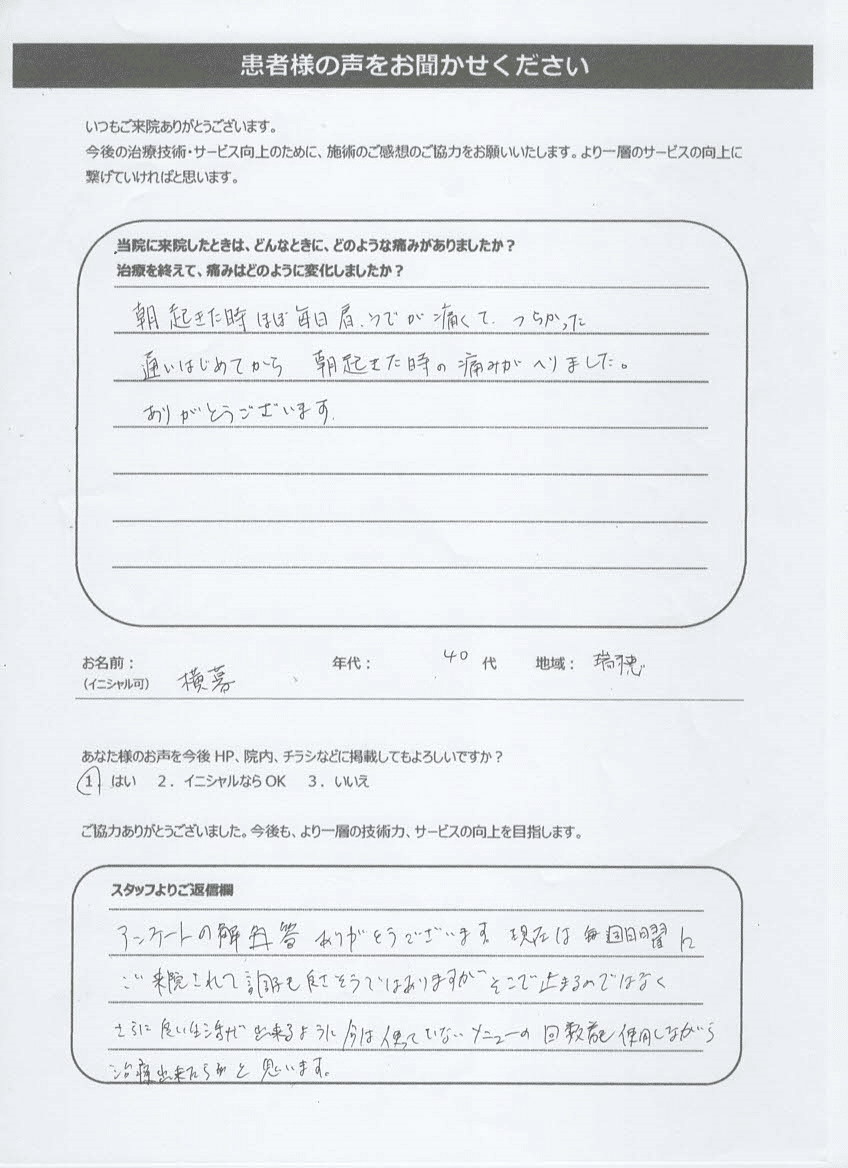 患者様の声をお聞かせください
いつもご来院ありがとうございます。
今後の治療技術・サービス向上のために、施術のご感想のご協力をお願いいたします。より一層のサービスの向上に
繋げていければと思います。
当院に来院したときは、どんなときに、どのような痛みがありましたか？
治療を終えて、痛みはどのように変化しましたか？
朝起きた時ほぼ毎日肩、うでが痛くて、つらかった
通いはじめてから 朝起きた時の痛みがへりました。
ありがとうございます.
お名前： 横幕 年代： 40 代 地域： 瑞穂
（イニシャル可）
あなた様のお声を今後 HP、院内、チラシなどに掲載してもよろしいですか？
1. はい 2．イニシャルなら OK 3．いいえ
ご協力ありがとうございました。今後も、より一層の技術力、サービスの向上を目指します。
スタッフよりご返信欄
アンケートの解答 ありがとうございます。現在は毎週日曜に
ご来院されて調子も良さそうではありますがそこで止まるのではなく
さらに良い生活が出来るように今は使っていないメニューの回数券も使用しながら
治療出来たらなと思います。